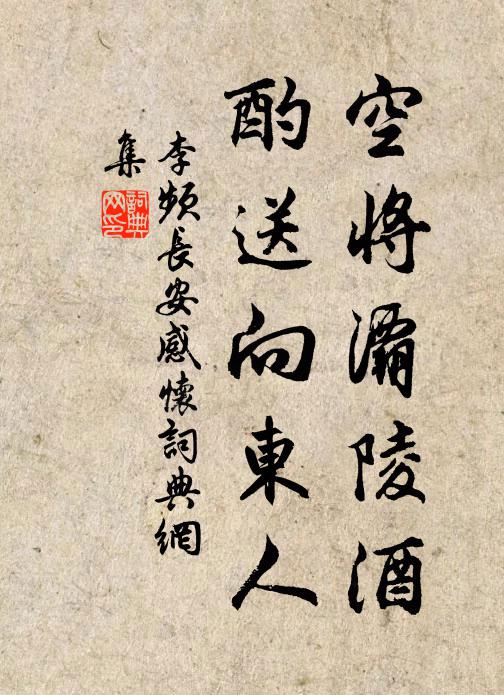 空將灞陵酒
酌送向東人
李頻長安感懷詞典網
集
詞典
网印